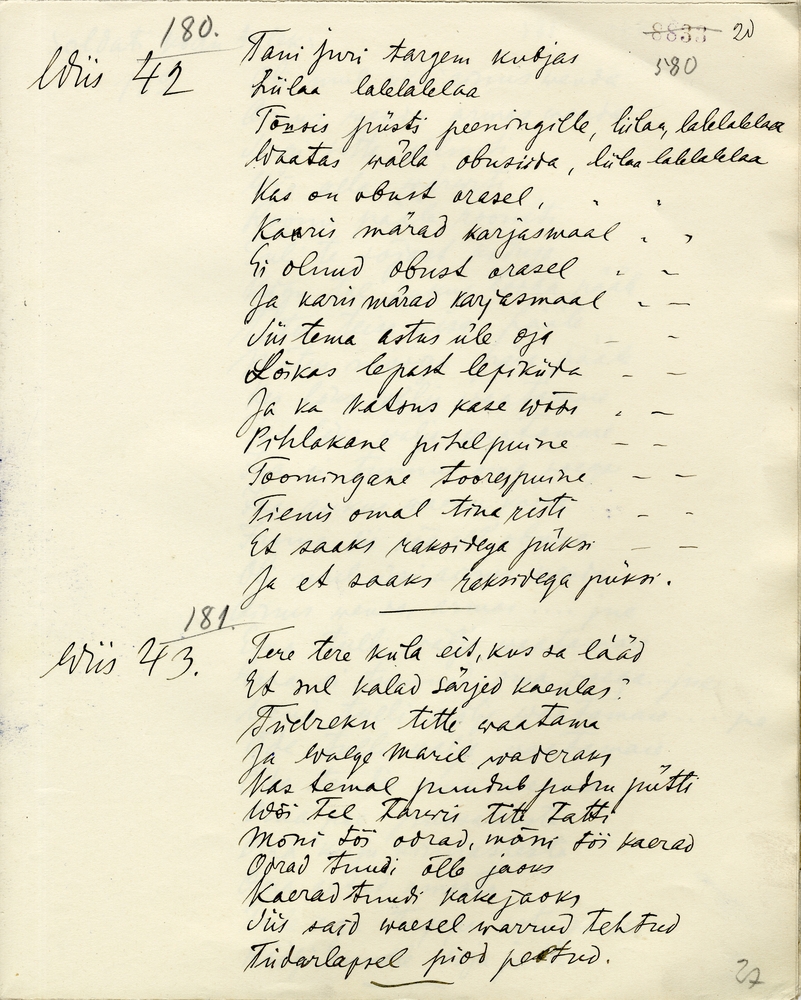 180.
8833 20
580
Wiis 42
Tani Juri targem kubjas
Liilaa lalelalelaa
Tõusis püsti peeningille, liilaa, lalelalelaa
Waatas wälla obusiida, liilaa lalelalelaa
Kas on obust orasel, " "
Kaaris märad karjasmaal " "
Ei olnud obust orasel " -
Ja karis märad karjasmaal - -
Siis tema astus üle oja - -
Lõikas lepast lepiküda - -
Ja ka katsus kase wõõs - -
Pihlakane pihelpuine - -
Toomingane toorespuine - -
Tienis omal tina risti - -
Et saaks raksidega püksi - -
Ja et saaks raksidega püksi.
181.
Wiis 43.
Tere tere küla eit, kus sa lääd
Et sul kalad särjed kaenlas?
Tiidreku titte waatama
Ja Walge Maril waderaks
Kas temal puudub pudru pütti
Wõi tel tarwis titi tatti
Mõni tõi odrad, mõni tõi kaerad
Odrad tuudi õlle jaoks
Kaerad tuudi kakejaoks
Siis said waesel warrud tehtud
Tüdarlapsel piod peetud.
27